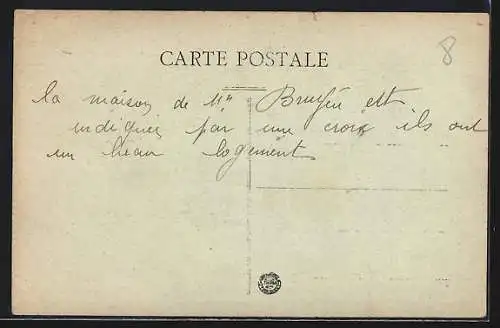 CARTE POSTALE
8
la maison de Mr Bruyère est
indiquée par une croix ils ont
un beau logement